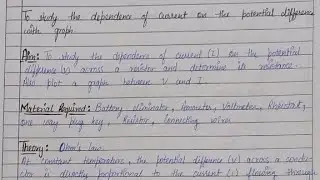 To study the dependence of current on the potential difference
with graph.
Aim: To study the dependence of current (I) on the potential
difference (V) across a resistor and determine its resistance.
Also plot a graph between V and I.
Material Required: Battery eliminator, Ammeter, Voltmeter, Rheostat,
one way plug key, Resistor, Connecting wires
Theory: Ohm's law.
At constant temperature, the potential difference (V) across a condu-
ctor is directly proportional to the current (I) flowing through